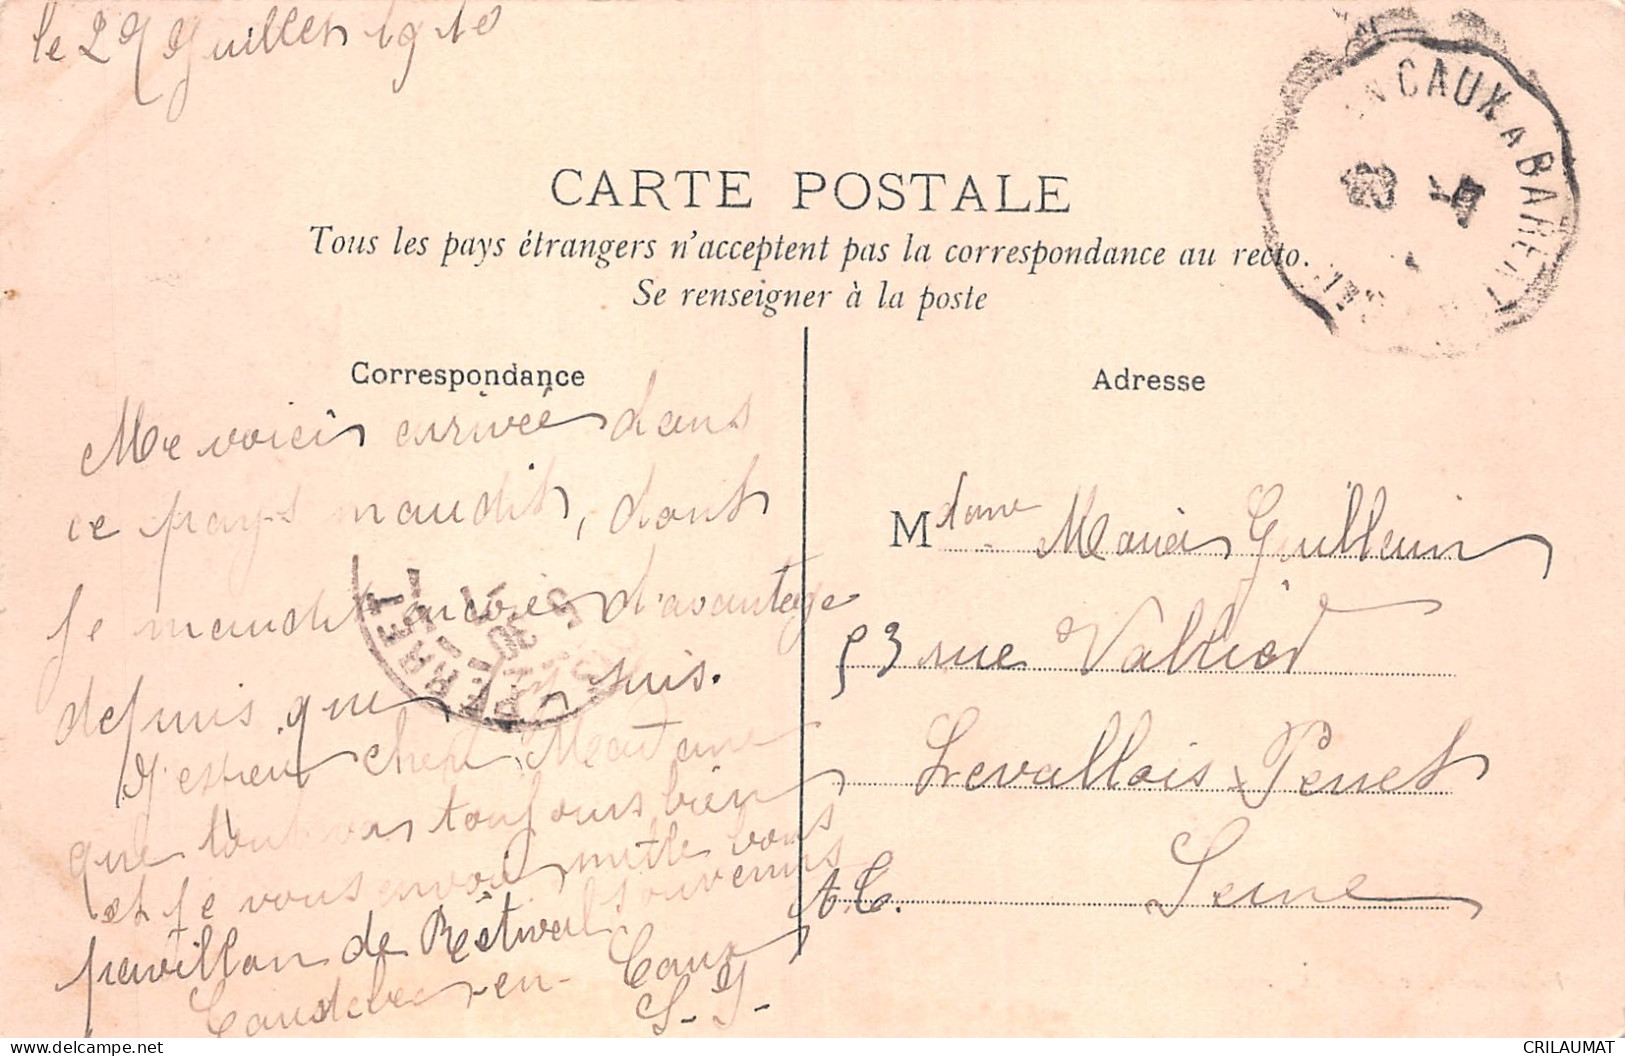 le 29 Juillet 1910
N CAUX A BARENT
CARTE POSTALE
Tous les pays étrangers n'acceptent pas la correspondance au recto.
Se renseigner à la poste
Correspondance
Me voici arrivée dans
ce pays maudit, dont
je maudit encore d'avantage
depuis que suis.
J'espère chère Madame
que tout vas toujours bien
et je vous envoie mille bons
souvenirs
pavillon de Rétival
Caudebec-en-Caux
S-Y-
PERRET
30
Adresse
Mdame Maria Guillemin
53 rue Vallier
Levallois-Perret
A.C. Seine
CRILAUMAT